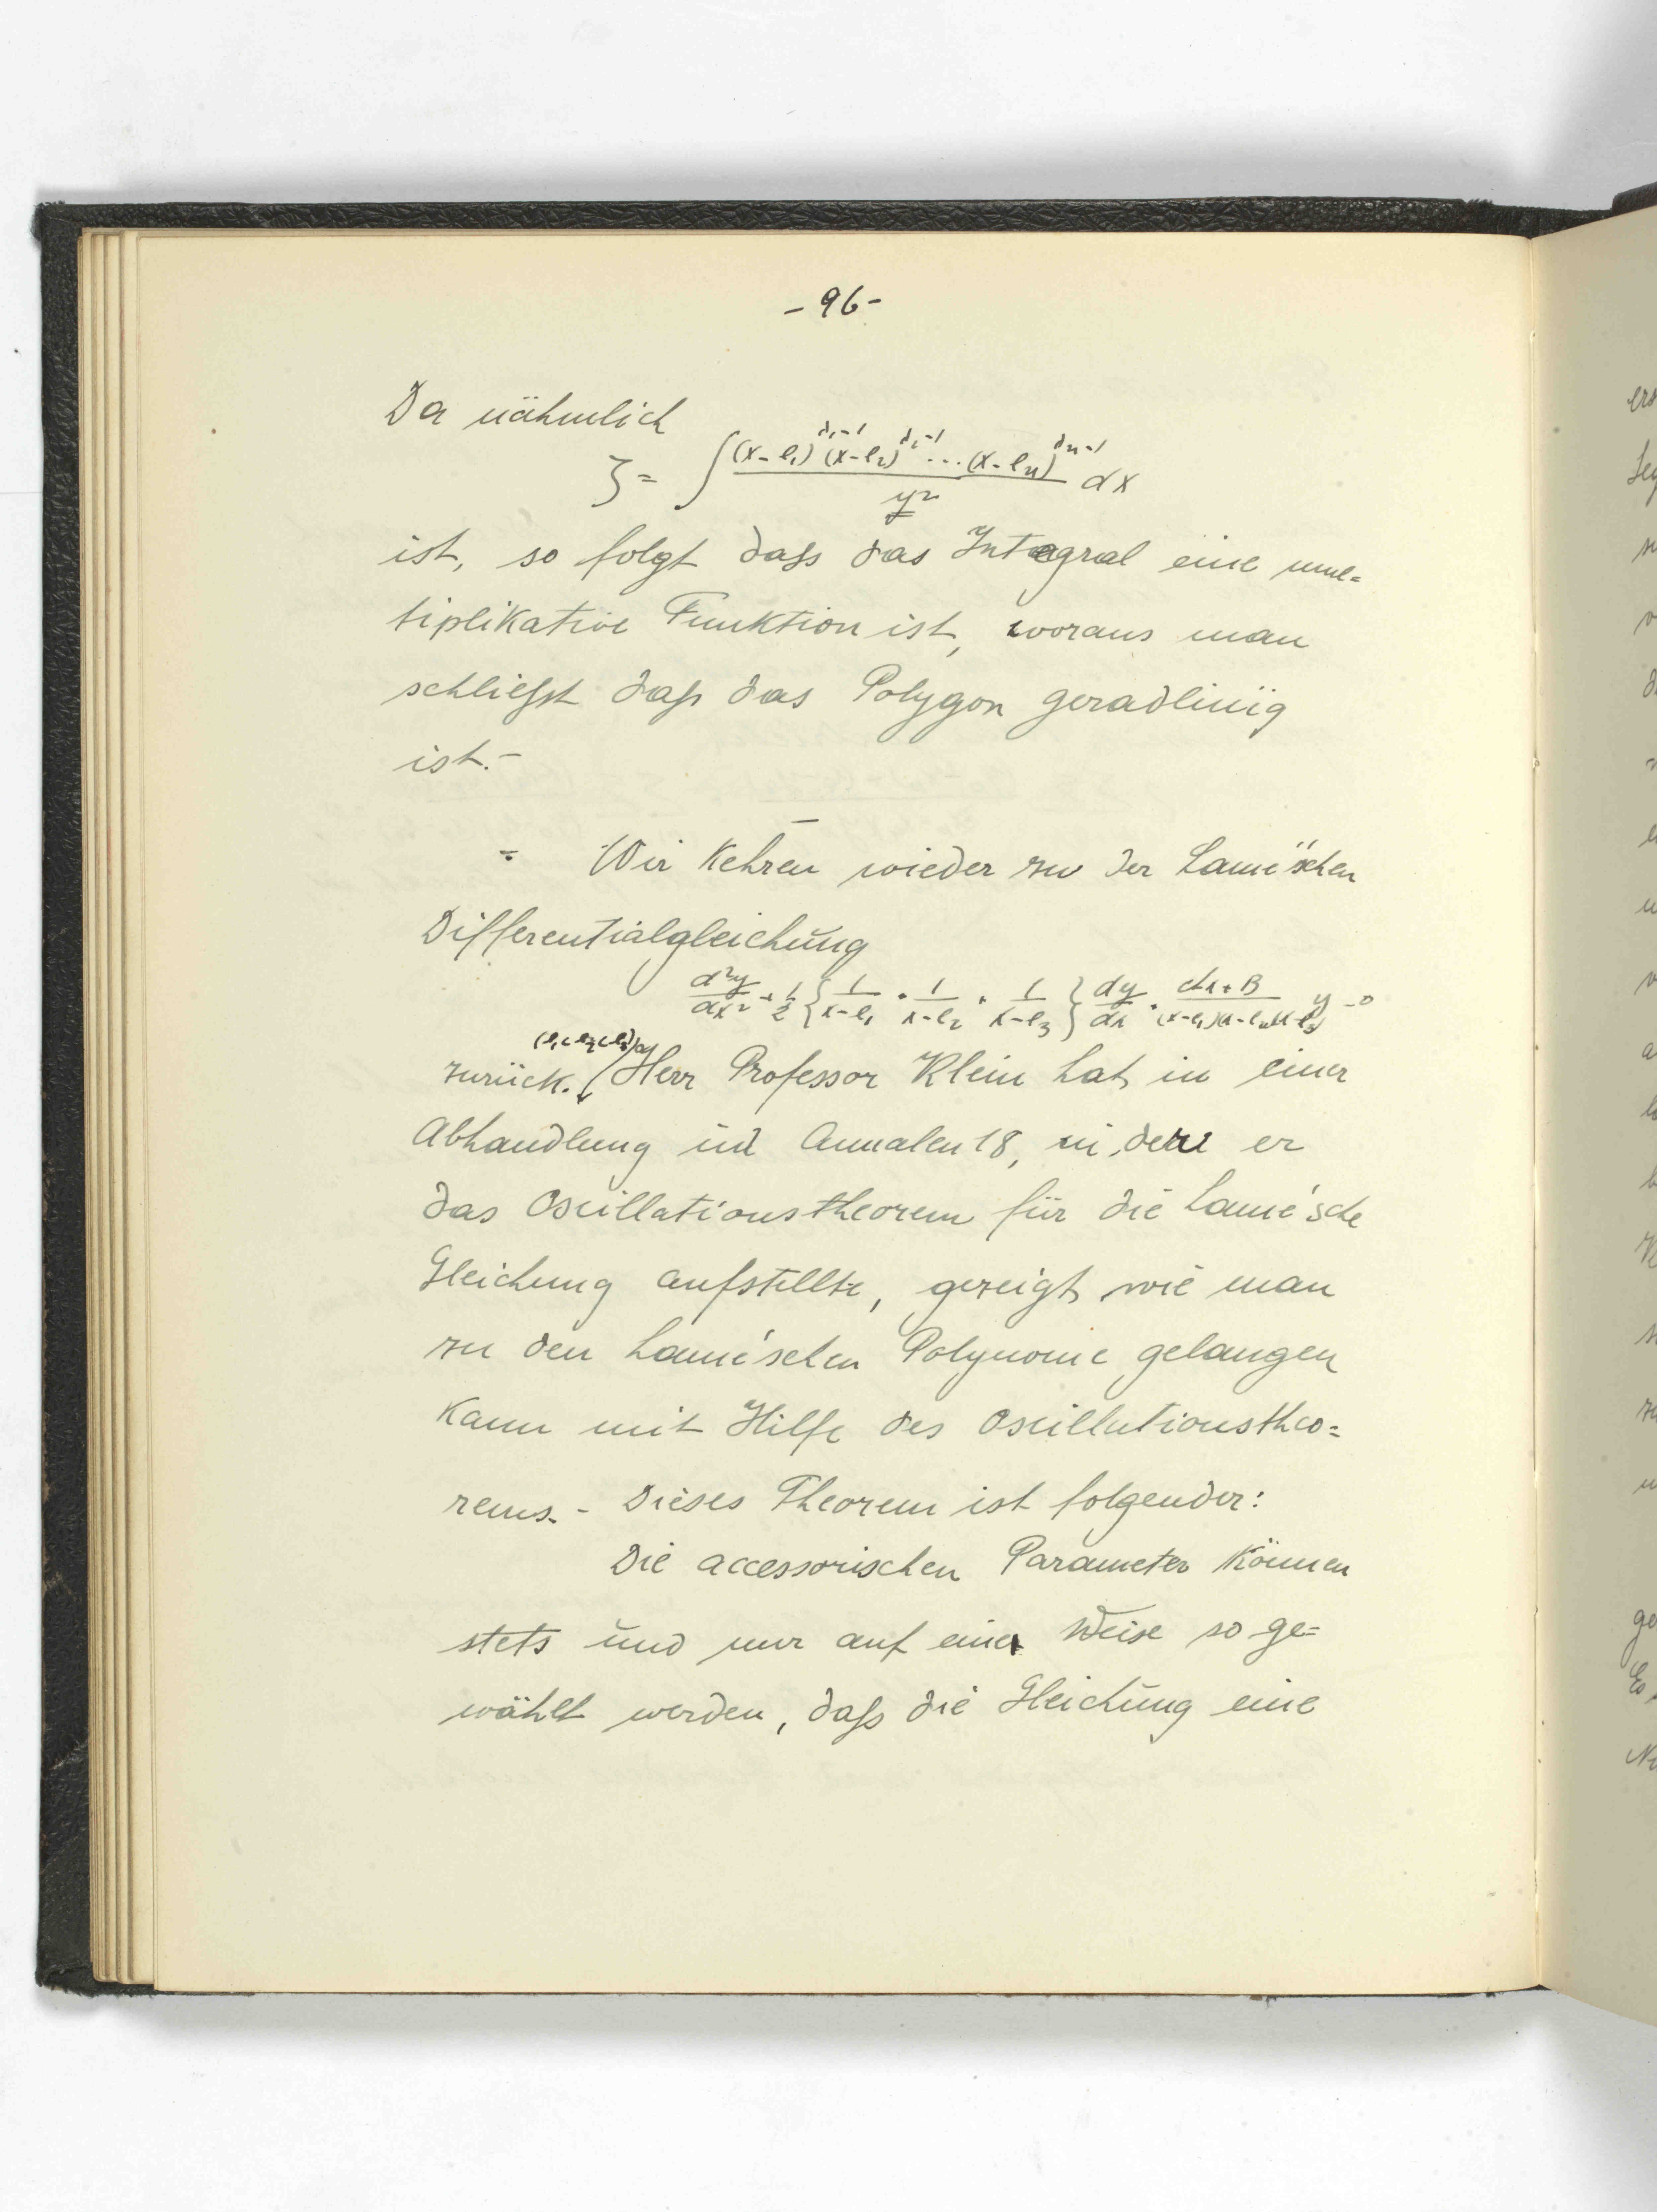 - 96 -
Da nähmlich
ζ = ∫ (x-e₁)^{λ₁-1} (x-e₂)^{λ₂-1} ... (x-eₙ)^{λₙ-1} / y² dx
ist, so folgt daß das Integral eine mul=
tiplikative Funktion ist, woraus man
schließt daß das Polygon geradlinig
ist.-
- Wir kehren wieder zu der Lamé'schen
Differentialgleichung
d²y/dx² + 1/2 {1/(x-e₁) + 1/(x-e₂) + 1/(x-e₃)} dy/dx + (Ax+B)/((x-e₁)(x-e₂)(x-e₃)) y = 0
(e₁<e₂<e₃)
zurück. Herr Professor Klein hat in einer
Abhandlung in Annalen 18, in der er
das Oscillationstheorem für die Lamé'sche
Gleichung aufstellte, gezeigt wie man
zu den Lamé'schen Polynome gelangen
kann mit Hilfe des Oscillationstheo=
rems. - Dieses Theorem ist folgender:
Die accessorischen Parameter können
stets und nur auf eine Weise so ge=
wählt werden, daß die Gleichung eine